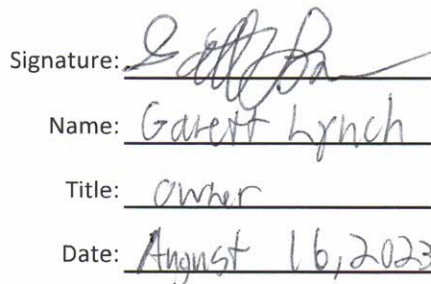 Signature:
Name: Garett Lynch
Title: owner
Date: August 16, 2023